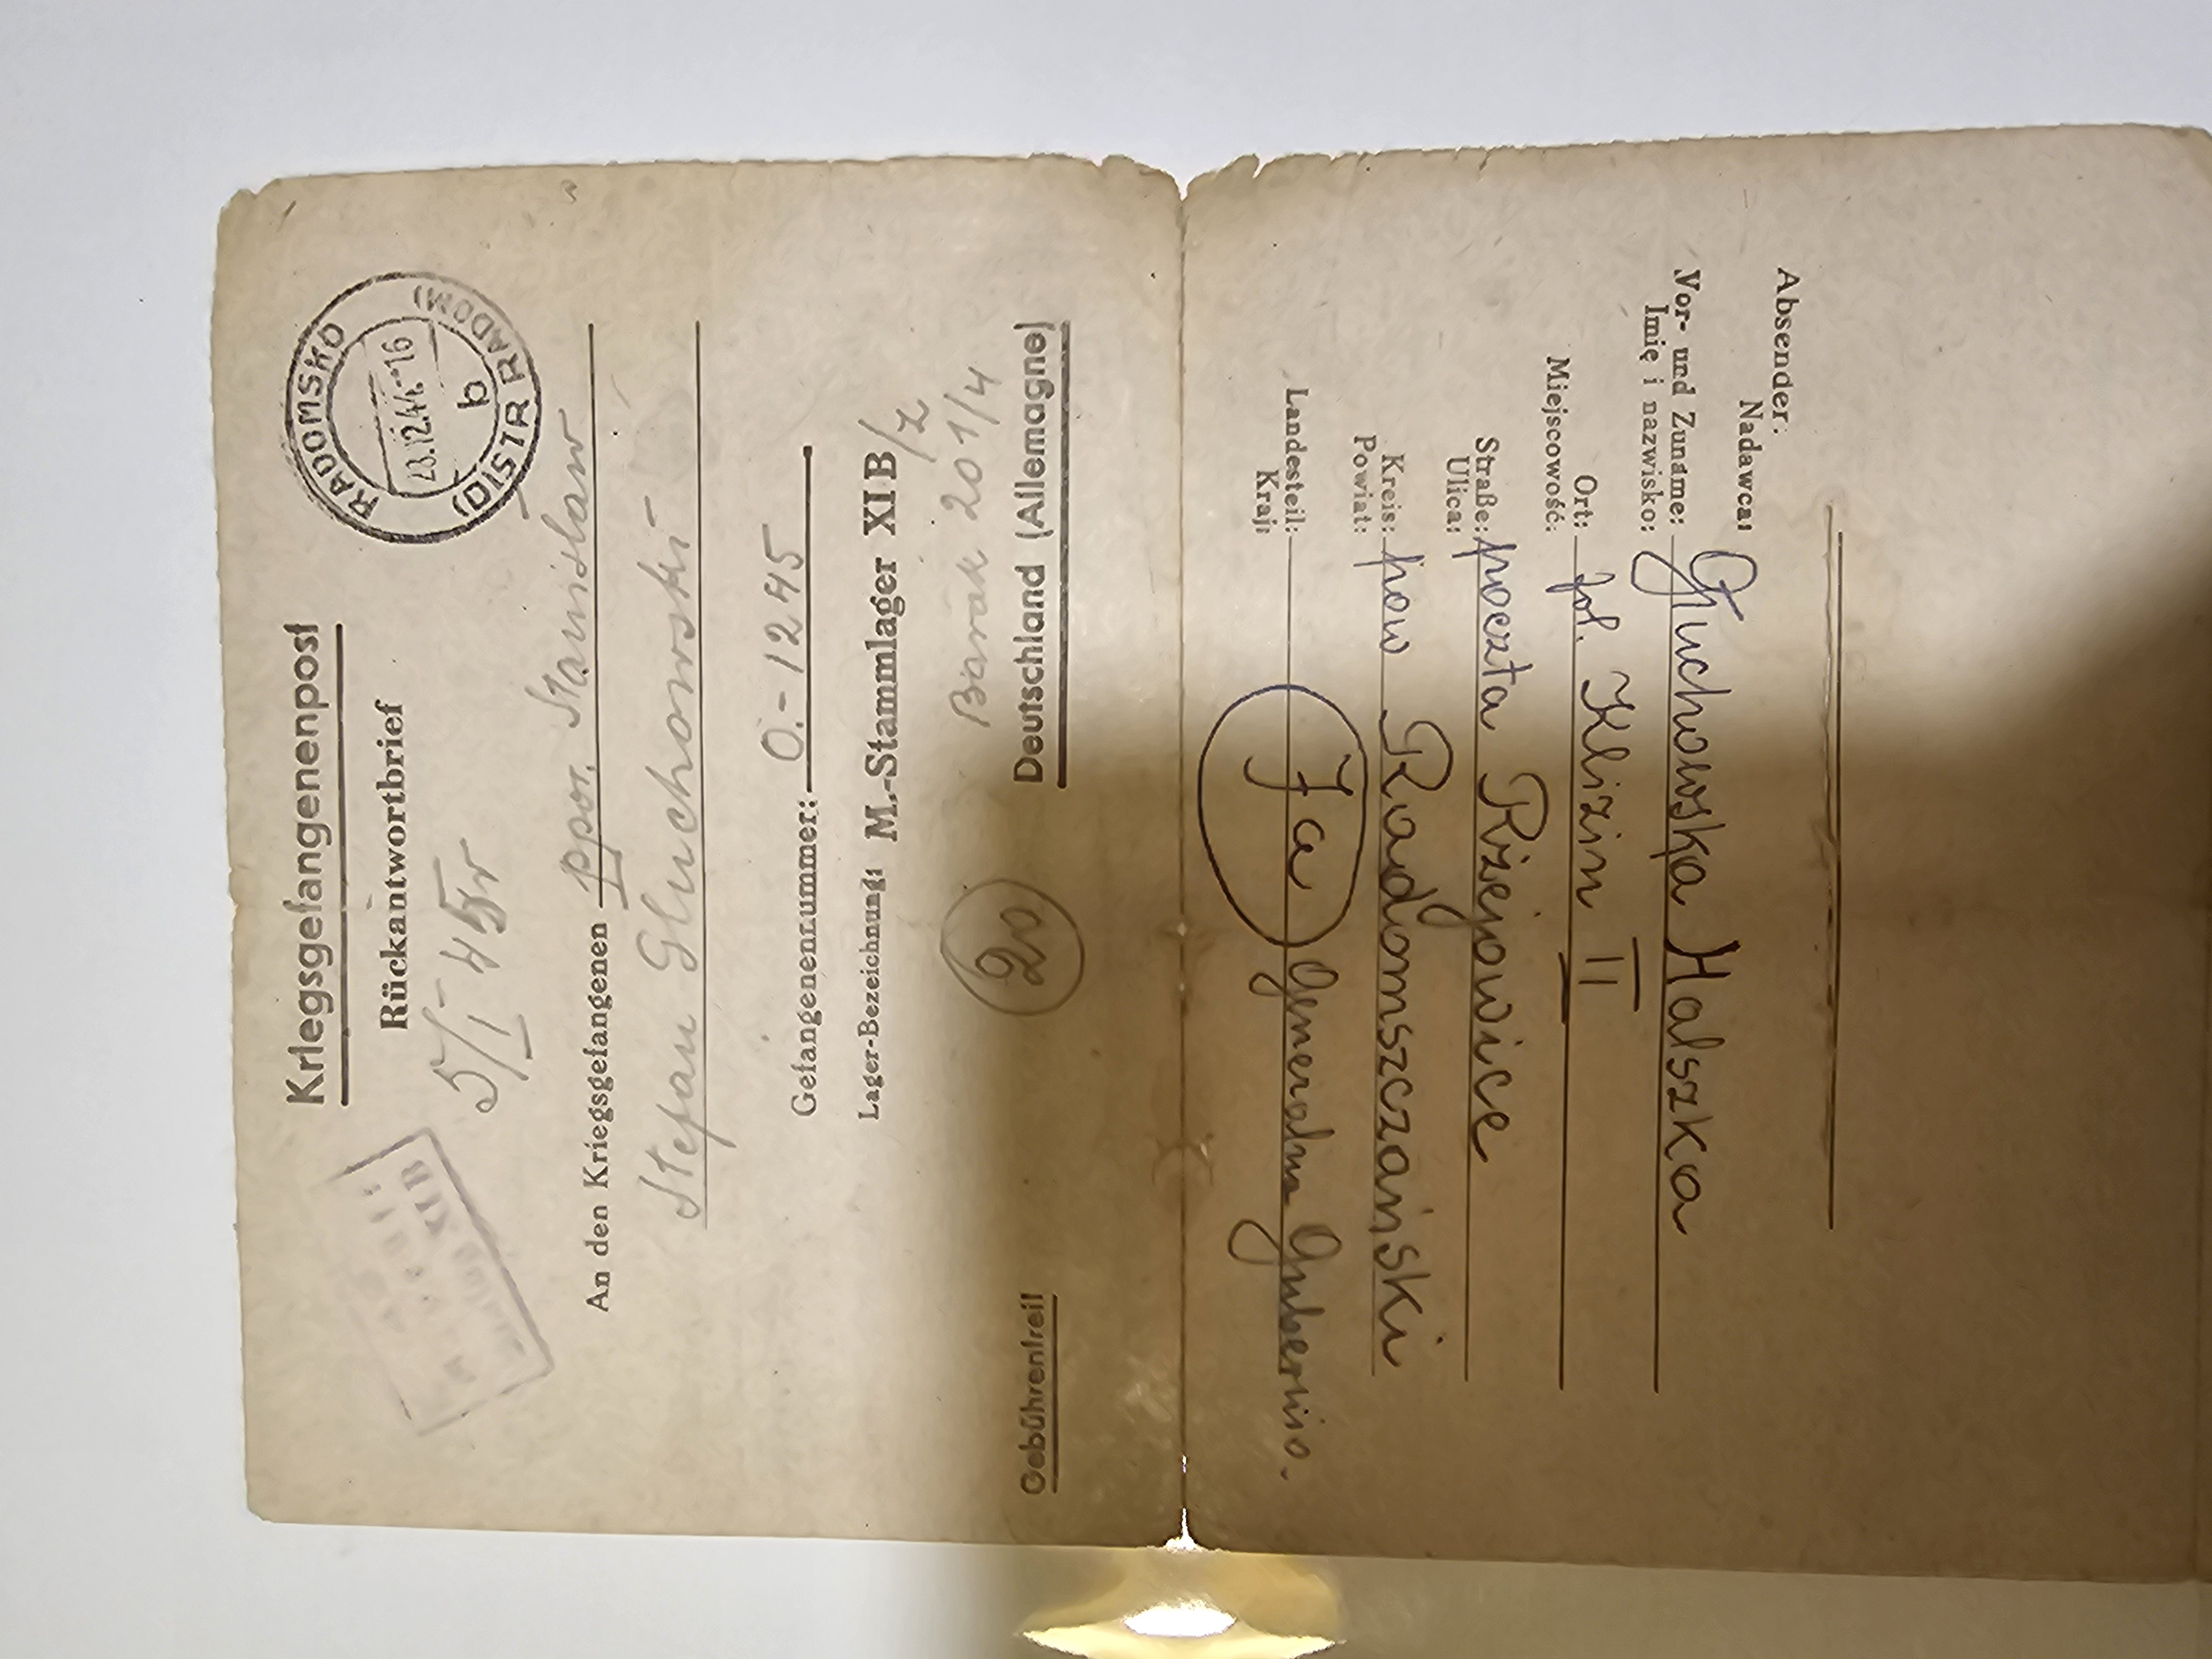 Kriegsgefangenenpost
RADOMSKO
(DISTR RADOM)
23.12.44.-16
b
Rückantwortbrief
5/I-45r
An den Kriegsgefangenen ppor. Stanisław
Stefan Głuchowski-
Gefangenennummer: O.-1245
Lager-Bezeichnung: M.-Stammlager XI B/z
Barak 201/4
20
Gebührenfrei!
Deutschland (Allemagne)
XIB
Absender:
Nadawca:
Vor- und Zuname:
Imię i nazwisko: Głuchowska Halszka
Ort:
Miejscowość: fol. Klizin II
Straße:
Ulica: poczta Rzejowice
Kreis:
Powiat: pow Radomszczański
Landesteil:
Kraj: Ja Generalna Gubernia.